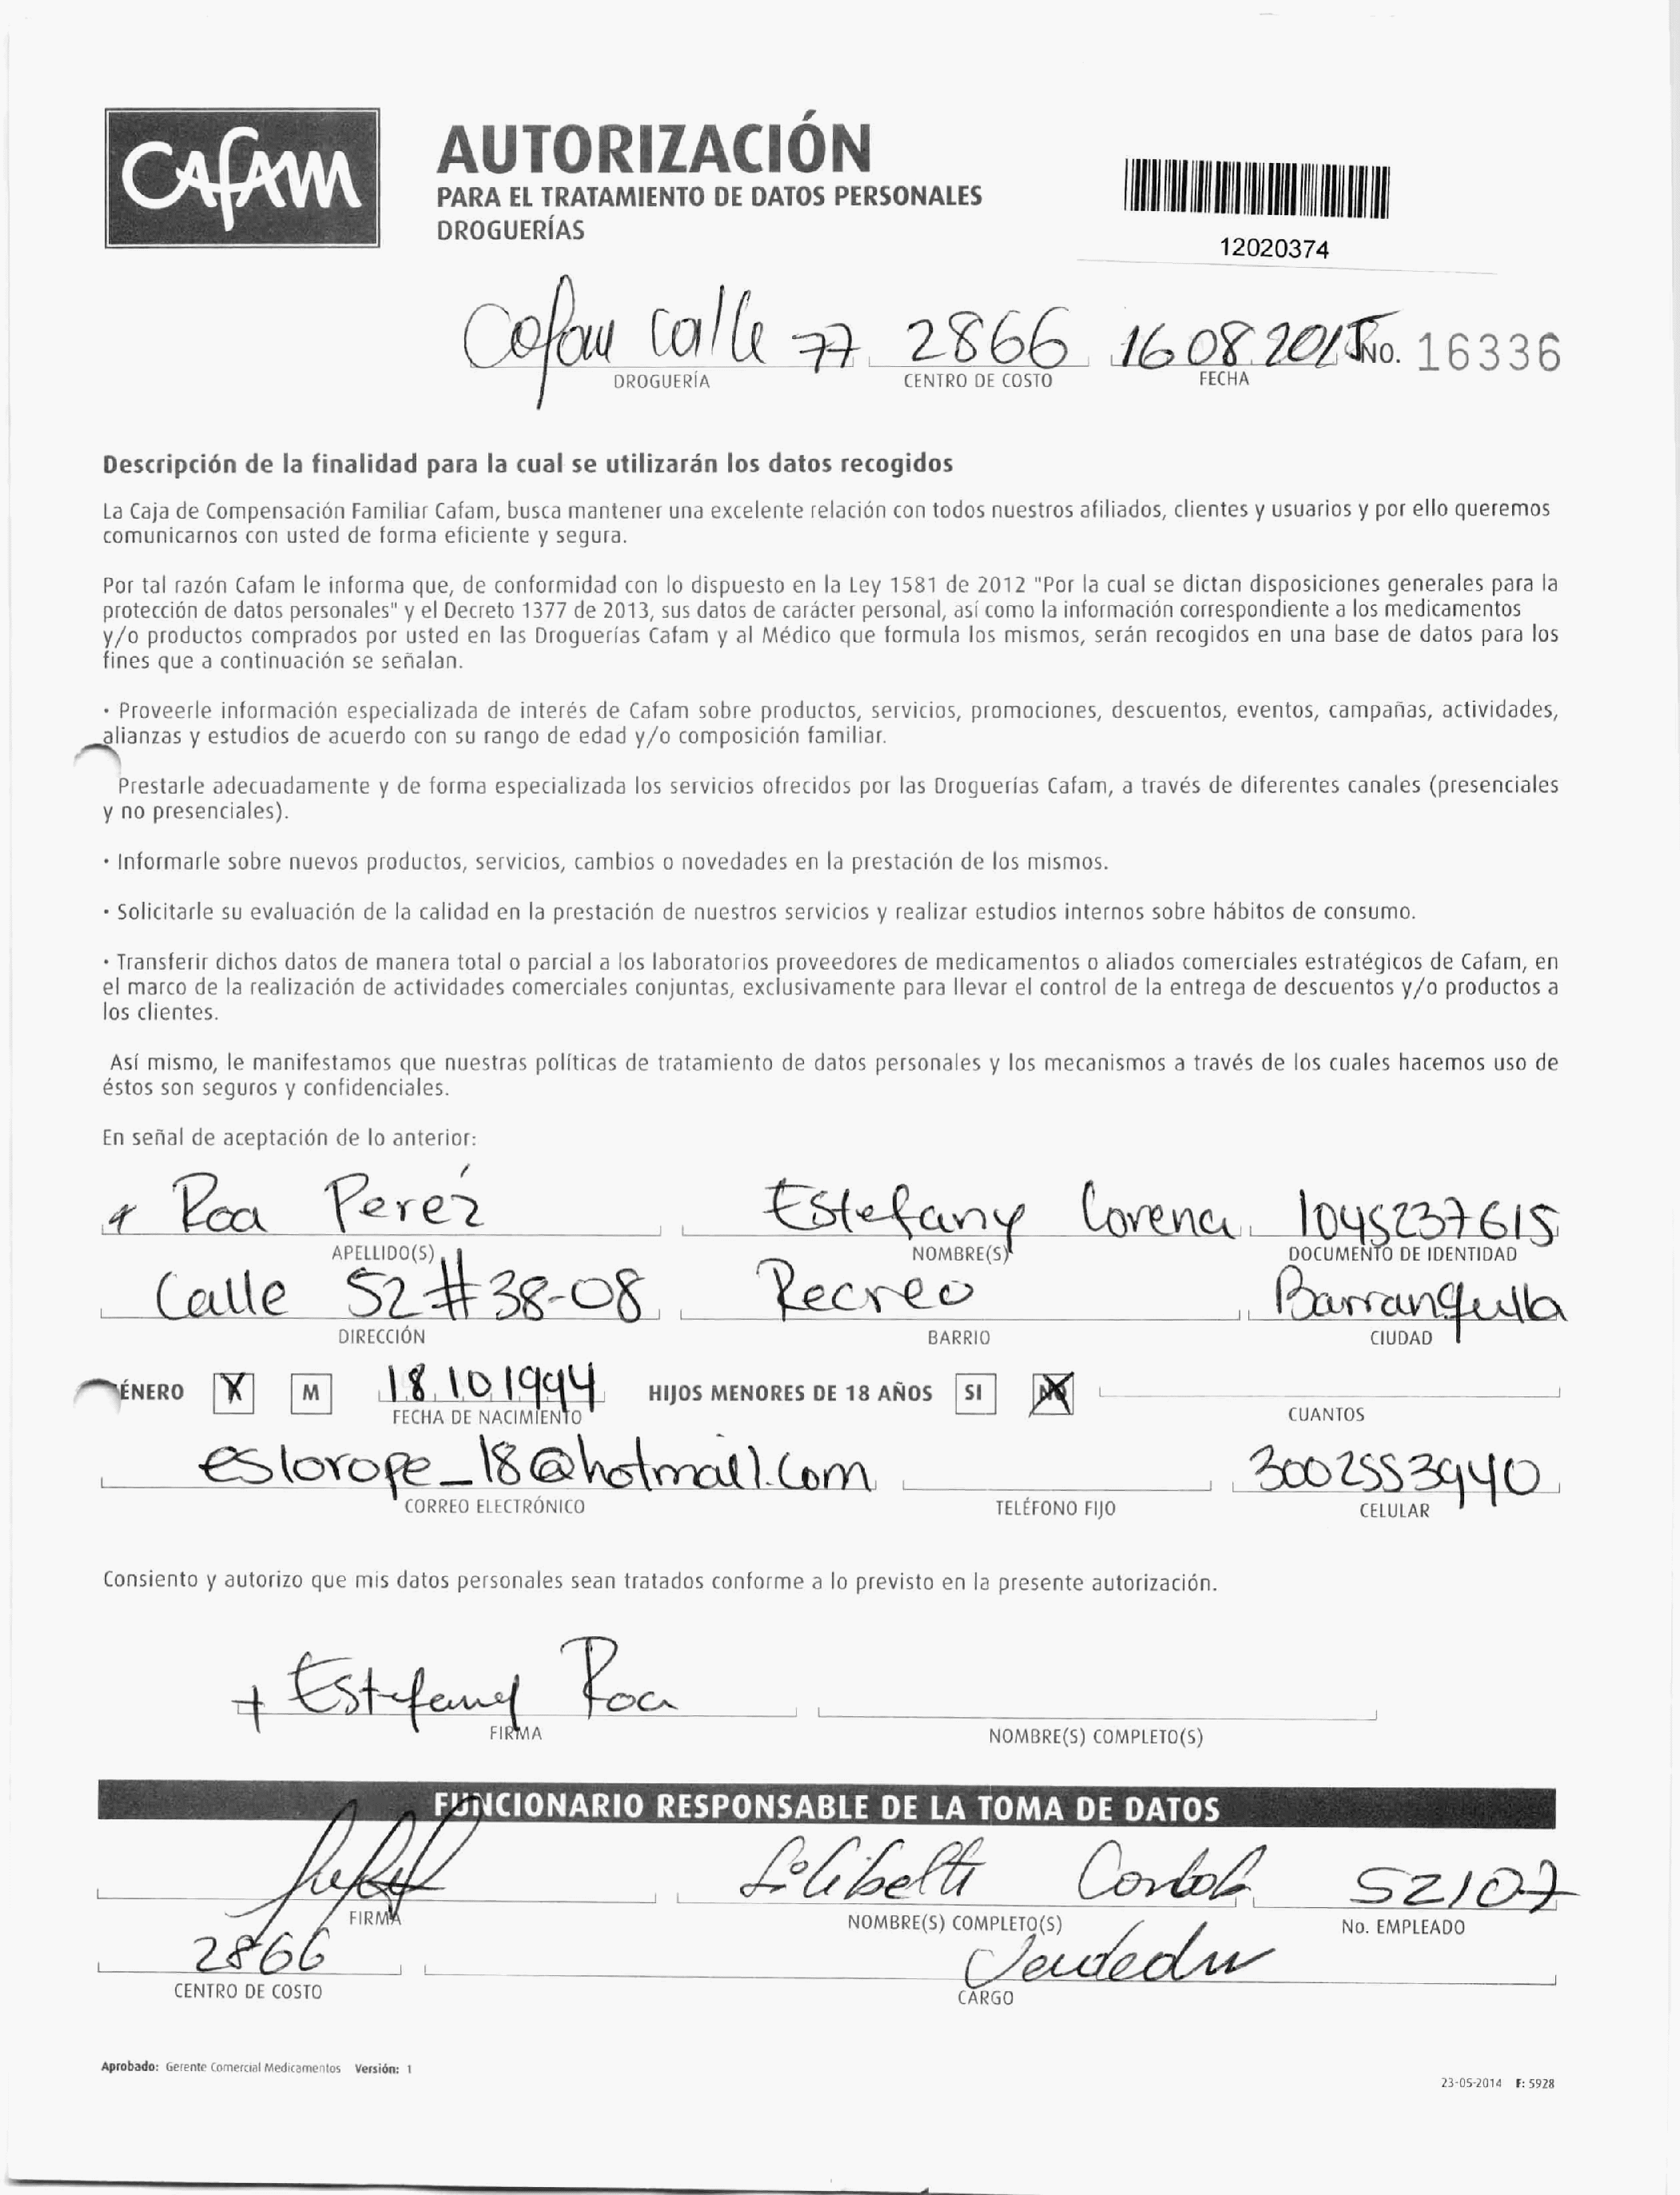 Cafam
AUTORIZACIÓN
PARA EL TRATAMIENTO DE DATOS PERSONALES
DROGUERÍAS
12020374
Cafam Calle 77 2866 16 08 2015 No. 16336
DROGUERÍA CENTRO DE COSTO FECHA
Descripción de la finalidad para la cual se utilizarán los datos recogidos
La Caja de Compensación Familiar Cafam, busca mantener una excelente relación con todos nuestros afiliados, clientes y usuarios y por ello queremos
comunicarnos con usted de forma eficiente y segura.
Por tal razón Cafam le informa que, de conformidad con lo dispuesto en la Ley 1581 de 2012 "Por la cual se dictan disposiciones generales para la
protección de datos personales" y el Decreto 1377 de 2013, sus datos de carácter personal, así como la información correspondiente a los medicamentos
y/o productos comprados por usted en las Droguerías Cafam y al Médico que formula los mismos, serán recogidos en una base de datos para los
fines que a continuación se señalan.
· Proveerle información especializada de interés de Cafam sobre productos, servicios, promociones, descuentos, eventos, campañas, actividades,
alianzas y estudios de acuerdo con su rango de edad y/o composición familiar.
Prestarle adecuadamente y de forma especializada los servicios ofrecidos por las Droguerías Cafam, a través de diferentes canales (presenciales
y no presenciales).
· Informarle sobre nuevos productos, servicios, cambios o novedades en la prestación de los mismos.
· Solicitarle su evaluación de la calidad en la prestación de nuestros servicios y realizar estudios internos sobre hábitos de consumo.
· Transferir dichos datos de manera total o parcial a los laboratorios proveedores de medicamentos o aliados comerciales estratégicos de Cafam, en
el marco de la realización de actividades comerciales conjuntas, exclusivamente para llevar el control de la entrega de descuentos y/o productos a
los clientes.
Así mismo, le manifestamos que nuestras políticas de tratamiento de datos personales y los mecanismos a través de los cuales hacemos uso de
éstos son seguros y confidenciales.
En señal de aceptación de lo anterior:
Roa Pérez Estefany Lorena 1045237615
APELLIDO(S) NOMBRE(S) DOCUMENTO DE IDENTIDAD
Calle 52 # 38-08 Recreo Barranquilla
DIRECCIÓN BARRIO CIUDAD
ÉNERO X M 18 10 1994 HIJOS MENORES DE 18 AÑOS SI X
FECHA DE NACIMIENTO CUANTOS
eslorope_18@hotmail.com 3002553940
CORREO ELECTRÓNICO TELÉFONO FIJO CELULAR
Consiento y autorizo que mis datos personales sean tratados conforme a lo previsto en la presente autorización.
+ Estefany Roa
FIRMA NOMBRE(S) COMPLETO(S)
FUNCIONARIO RESPONSABLE DE LA TOMA DE DATOS
52107
FIRMA NOMBRE(S) COMPLETO(S) No. EMPLEADO
2866 Vendedor
CENTRO DE COSTO CARGO
Aprobado: Gerente Comercial Medicamentos Versión: 1
23-05-2014 F: 5928